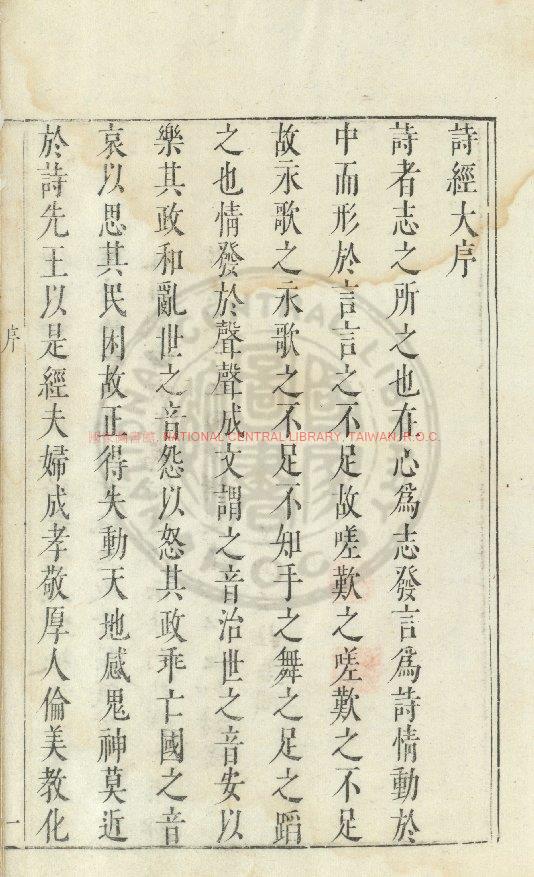 詩經大序
詩者志之所之也在心為志發言為詩情動於
中而形於言言之不足故嗟歎之嗟歎之不足
故永歌之永歌之不足不知手之舞之足之蹈
之也情發於聲聲成文謂之音治世之音安以
樂其政和亂世之音怨以怒其政乖亡國之音
哀以思其民困故正得失動天地感鬼神莫近
於詩先王以是經夫婦成孝敬厚人倫美教化
序
一
國家圖書館, NATIONAL CENTRAL LIBRARY, TAIWAN, R.O.C.